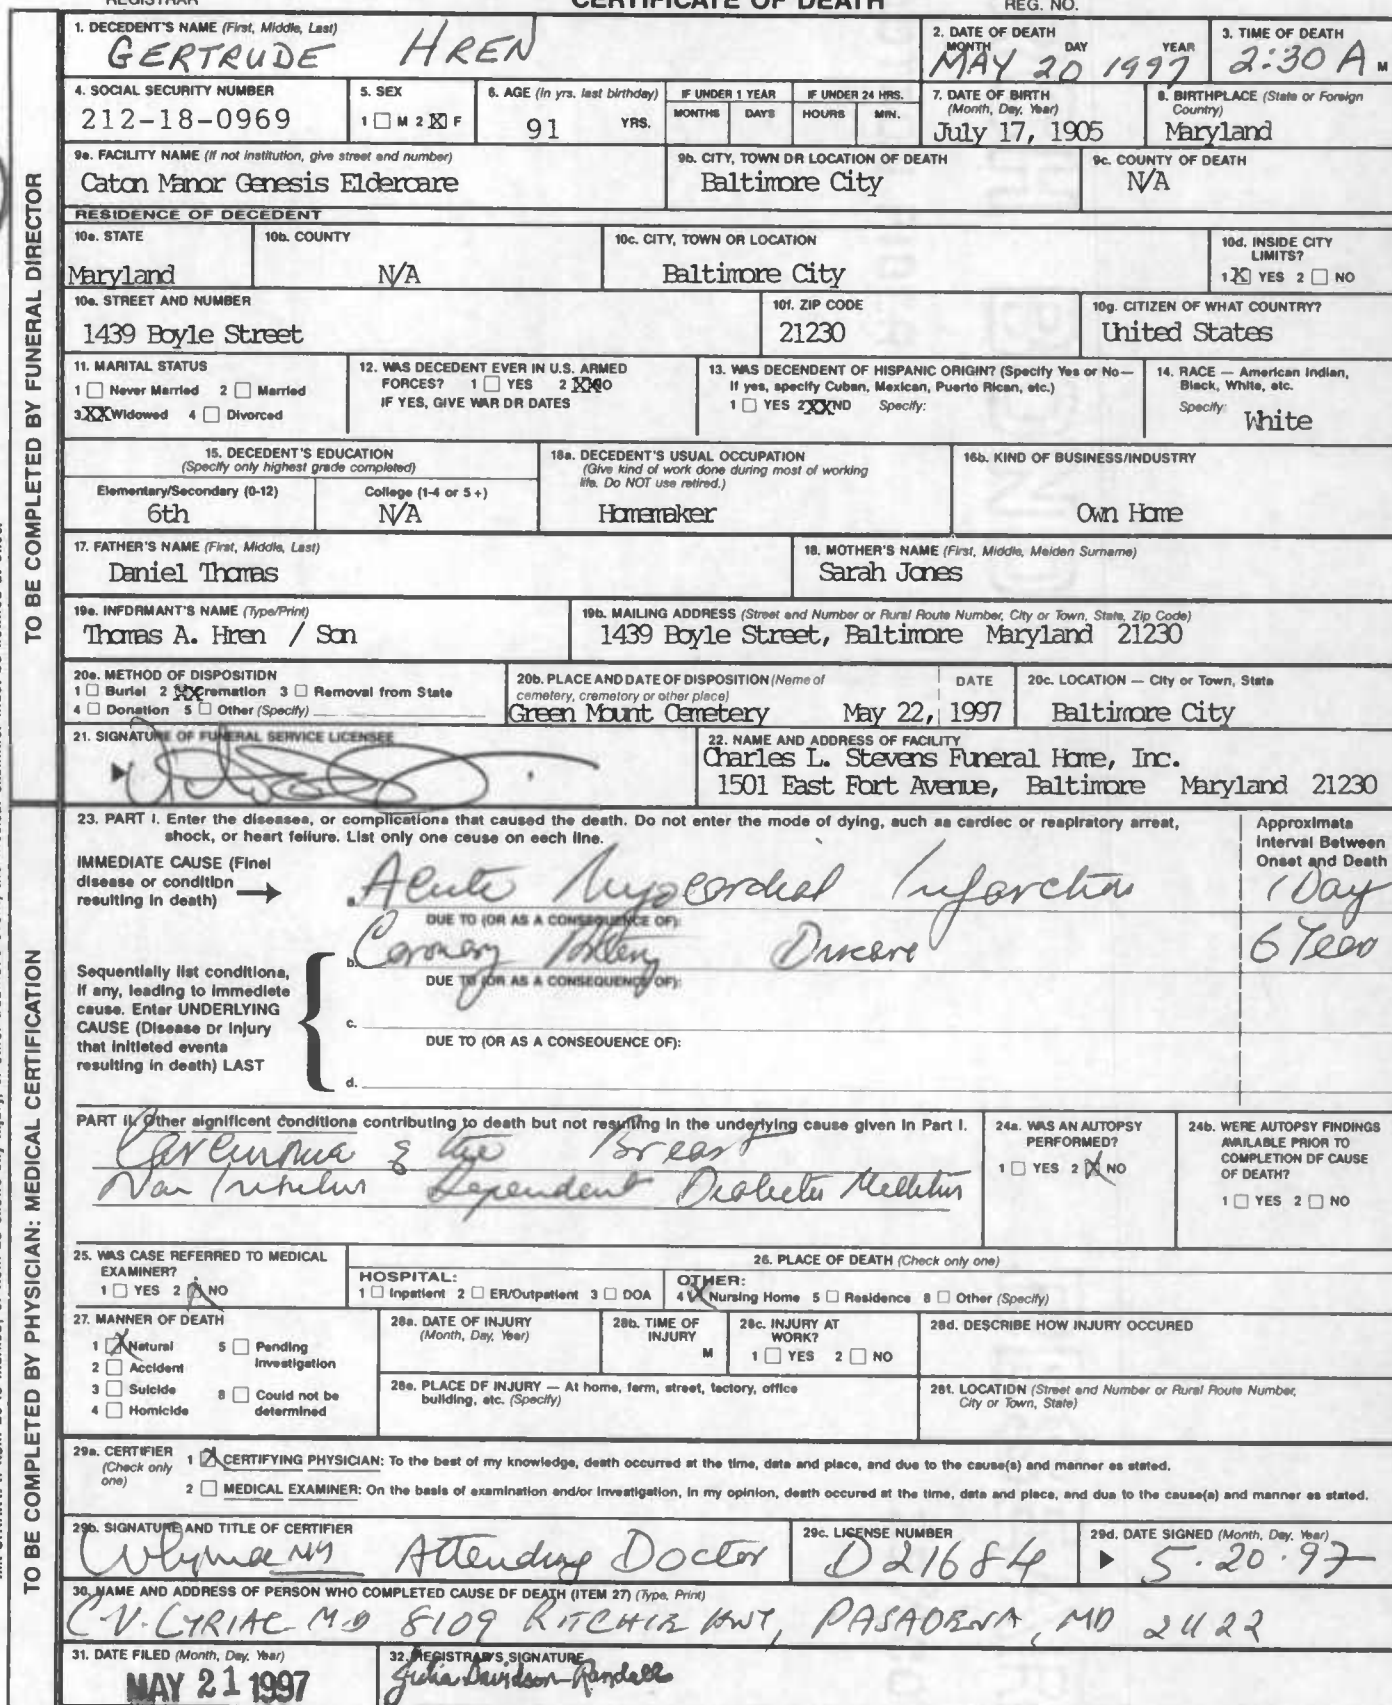 REGISTRAR CERTIFICATE OF DEATH REG. NO.
1. DECEDENT'S NAME (First, Middle, Last)
GERTRUDE HREN
2. DATE OF DEATH
MONTH DAY YEAR
MAY 20 1997
3. TIME OF DEATH
2:30 A M
4. SOCIAL SECURITY NUMBER
212-18-0969
5. SEX
1 ☐ M 2 ☒ F
6. AGE (In yrs. last birthday)
91 YRS.
IF UNDER 1 YEAR
MONTHS DAYS
IF UNDER 24 HRS.
HOURS MIN.
7. DATE OF BIRTH
(Month, Day, Year)
July 17, 1905
8. BIRTHPLACE (State or Foreign
Country)
Maryland
9a. FACILITY NAME (If not institution, give street and number)
Caton Manor Genesis Eldercare
9b. CITY, TOWN OR LOCATION OF DEATH
Baltimore City
9c. COUNTY OF DEATH
N/A
RESIDENCE OF DECEDENT
10a. STATE
Maryland
10b. COUNTY
N/A
10c. CITY, TOWN OR LOCATION
Baltimore City
10d. INSIDE CITY
LIMITS?
1 ☒ YES 2 ☐ NO
10e. STREET AND NUMBER
1439 Boyle Street
10f. ZIP CODE
21230
10g. CITIZEN OF WHAT COUNTRY?
United States
11. MARITAL STATUS
1 ☐ Never Married 2 ☐ Married
3 XX Widowed 4 ☐ Divorced
12. WAS DECEDENT EVER IN U.S. ARMED
FORCES? 1 ☐ YES 2 XX NO
IF YES, GIVE WAR OR DATES
13. WAS DECENDENT OF HISPANIC ORIGIN? (Specify Yes or No—
If yes, specify Cuban, Mexican, Puerto Rican, etc.)
1 ☐ YES 2 XX NO Specify:
14. RACE — American Indian,
Black, White, etc.
Specify: White
15. DECEDENT'S EDUCATION
(Specify only highest grade completed)
Elementary/Secondary (0-12)
6th
College (1-4 or 5+)
N/A
16a. DECEDENT'S USUAL OCCUPATION
(Give kind of work done during most of working
life. Do NOT use retired.)
Homemaker
16b. KIND OF BUSINESS/INDUSTRY
Own Home
17. FATHER'S NAME (First, Middle, Last)
Daniel Thomas
18. MOTHER'S NAME (First, Middle, Maiden Surname)
Sarah Jones
19a. INFORMANT'S NAME (Type/Print)
Thomas A. Hren / Son
19b. MAILING ADDRESS (Street and Number or Rural Route Number, City or Town, State, Zip Code)
1439 Boyle Street, Baltimore Maryland 21230
20a. METHOD OF DISPOSITION
1 ☐ Burial 2 XX Cremation 3 ☐ Removal from State
4 ☐ Donation 5 ☐ Other (Specify)
20b. PLACE AND DATE OF DISPOSITION (Name of
cemetery, crematory or other place)
DATE
Green Mount Cemetery May 22, 1997
20c. LOCATION — City or Town, State
Baltimore City
21. SIGNATURE OF FUNERAL SERVICE LICENSEE
22. NAME AND ADDRESS OF FACILITY
Charles L. Stevens Funeral Home, Inc.
1501 East Fort Avenue, Baltimore Maryland 21230
TO BE COMPLETED BY FUNERAL DIRECTOR
23. PART I. Enter the diseases, or complications that caused the death. Do not enter the mode of dying, such as cardiac or respiratory arrest,
shock, or heart failure. List only one cause on each line.
Approximate
Interval Between
Onset and Death
IMMEDIATE CAUSE (Final
disease or condition
resulting in death)
a. Acute Myocardial Infarction 1 Day
DUE TO (OR AS A CONSEQUENCE OF):
b. Coronary Artery Disease 6 Years
DUE TO (OR AS A CONSEQUENCE OF):
Sequentially list conditions,
if any, leading to immediate
cause. Enter UNDERLYING
CAUSE (Disease or injury
that initiated events
resulting in death) LAST
c.
DUE TO (OR AS A CONSEQUENCE OF):
d.
PART II. Other significant conditions contributing to death but not resulting in the underlying cause given in Part I.
Carcinoma of the Breast
Non Insulin Dependent Diabetes Mellitus
24a. WAS AN AUTOPSY
PERFORMED?
1 ☐ YES 2 ☒ NO
24b. WERE AUTOPSY FINDINGS
AVAILABLE PRIOR TO
COMPLETION OF CAUSE
OF DEATH?
1 ☐ YES 2 ☐ NO
25. WAS CASE REFERRED TO MEDICAL
EXAMINER?
1 ☐ YES 2 ☒ NO
26. PLACE OF DEATH (Check only one)
HOSPITAL:
1 ☐ Inpatient 2 ☐ ER/Outpatient 3 ☐ DOA
OTHER:
4 ☒ Nursing Home 5 ☐ Residence 6 ☐ Other (Specify)
27. MANNER OF DEATH
1 ☒ Natural 5 ☐ Pending
Investigation
2 ☐ Accident
3 ☐ Suicide 6 ☐ Could not be
determined
4 ☐ Homicide
28a. DATE OF INJURY
(Month, Day, Year)
28b. TIME OF
INJURY
M
28c. INJURY AT
WORK?
1 ☐ YES 2 ☐ NO
28d. DESCRIBE HOW INJURY OCCURED
28e. PLACE OF INJURY — At home, farm, street, factory, office
building, etc. (Specify)
28f. LOCATION (Street and Number or Rural Route Number,
City or Town, State)
29a. CERTIFIER
(Check only
one)
1 ☒ CERTIFYING PHYSICIAN: To the best of my knowledge, death occurred at the time, date and place, and due to the cause(s) and manner as stated.
2 ☐ MEDICAL EXAMINER: On the basis of examination and/or investigation, in my opinion, death occured at the time, date and place, and due to the cause(s) and manner as stated.
29b. SIGNATURE AND TITLE OF CERTIFIER
MD Attending Doctor
29c. LICENSE NUMBER
D21684
29d. DATE SIGNED (Month, Day, Year)
5.20.97
30. NAME AND ADDRESS OF PERSON WHO COMPLETED CAUSE OF DEATH (ITEM 27) (Type, Print)
C.V. CYRIAC MD 8109 RITCHIE HWY, PASADENA, MD 21122
31. DATE FILED (Month, Day, Year)
MAY 21 1997
32. REGISTRAR'S SIGNATURE
Julia Davidson-Randall
TO BE COMPLETED BY PHYSICIAN: MEDICAL CERTIFICATION